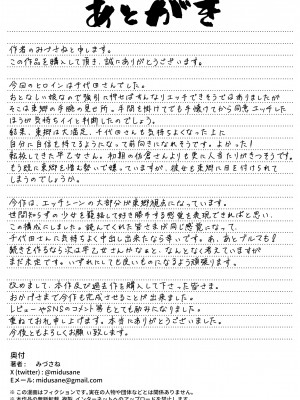 あとがき
作者のみづさねと申します。
この作品を購入して頂き、誠にありがとうございます。
今回のヒロインは千代田さんでした。
おとなしい娘なので強引に押せばすんなりエッチできそうではありましたが
そこは東郷の手腕の見せ所。手間を掛けてでも手懐けてから同意エッチした
ほうが気持ちイイと判断したのでしょう。
結果、東郷は大満足、千代田さんも気持ちよくなった上に
自分に自信を持てるようになって前向きになれそうです。よかった！
転校してきた早乙女さんが、初期の佐倉さんよりも更に人当たりがきつそうです。
もう既に東郷を憎み勢いで嫌っていますが、彼女も東郷に目を付けられて
しまうのでしょうか。
今作は、エッチシーンの大部分が東郷視点になっています。
世間知らずの少女を籠絡して好き勝手する感覚を表現できればと思い、
この構成にしました。読んでくれた皆さまが同じ感覚になって、
千代田さんに気持ちよく中出し出来たなら幸いです。あ、あとブルマも！
続きを作るなら次は早乙女さんかなぁと、なんとなく考えていますが
まだ未定です。いずれにしても良いものになるよう頑張ります。
改めまして、本作及び過去作を購入して下さった皆さま、
おかげさまで今作も完成させることが出来ました。
レビューやSNSのコメント等もとても励みになりました。
重ねてお礼申し上げます。本当にありがとうございました。
今後ともよろしくお願い致します。
奥付
著者： みづさね
X (twitter)：@midusane
Eメール：midusane@gmail.com
※この漫画はフィクションです。実在の人物や団体などとは関係ありません。
※本作品の無断転載、複製、インターネットへのアップロードを禁止します。